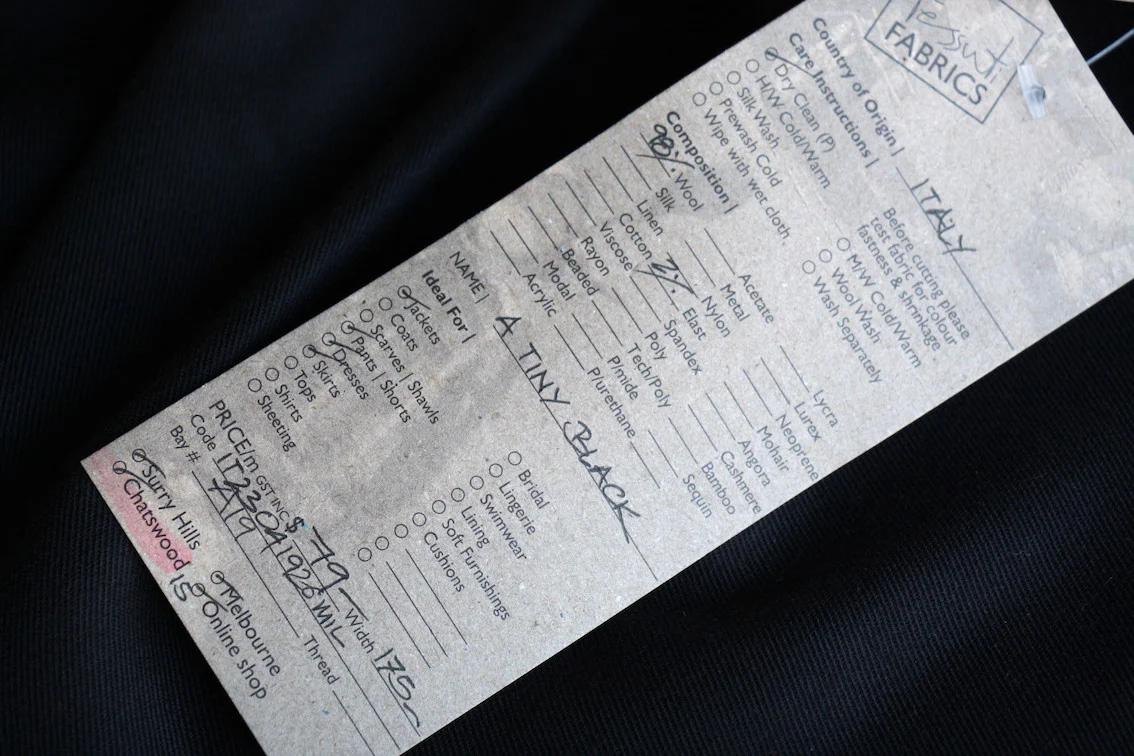 Tessuti
FABRICS
Country of Origin | ITALY
Care Instructions |
Dry Clean (P)
H/W Cold/Warm
Silk Wash
Prewash Cold
Wipe with wet cloth.
Before cutting please
test fabric for colour
fastness & shrinkage
M/W Cold/Warm
Wool Wash
Wash Separately
Composition |
98% Wool
Silk
Linen
Cotton
Viscose
Rayon
Beaded
Modal
Acrylic
Acetate
Metal
Nylon
2% Elast
Spandex
Poly
Tech/Poly
P/mide
P/urethane
Lycra
Lurex
Neoprene
Mohair
Angora
Cashmere
Bamboo
Sequin
NAME | A TINY BLACK
Ideal For |
Jackets
Coats
Scarves | Shawls
Pants | Shorts
Dresses
Skirts
Tops
Shirts
Sheeting
Bridal
Lingerie
Swimwear
Lining
Soft Furnishings
Cushions
PRICE/m GST INC $ 79- Width 175-
Code IT23041926MIL
Bay # A19 Thread
Surry Hills
Chatswood 15
Melbourne
Online shop